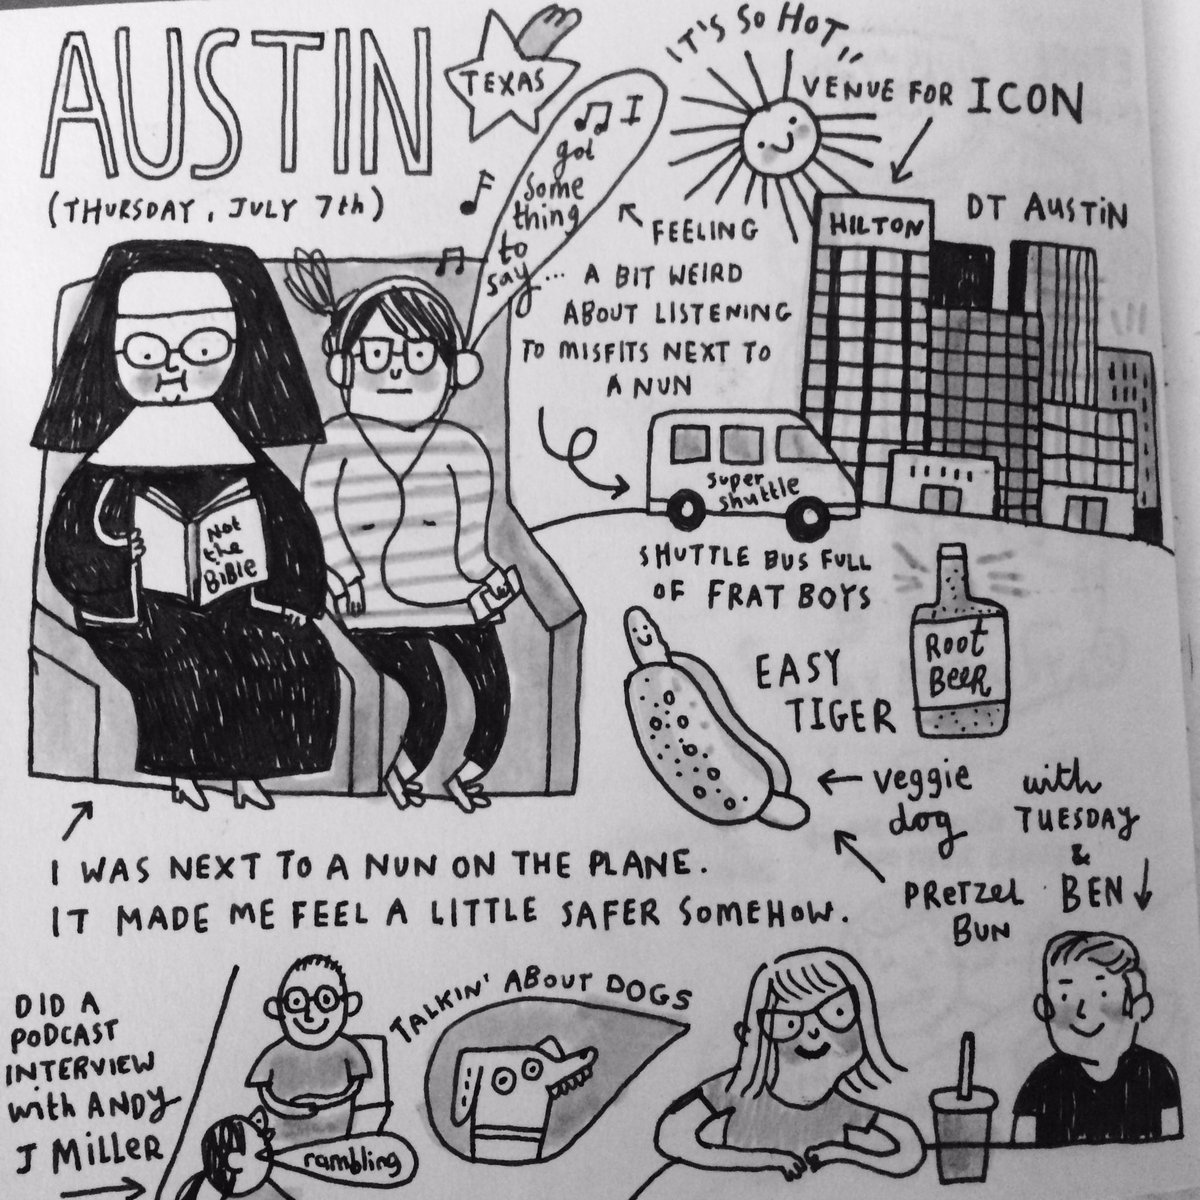 AUSTIN
TEXAS
(THURSDAY, JULY 7th)
I
got
some
thing
to
say...
IT'S SO HOT
VENUE FOR ICON
HILTON
DT AUSTIN
FEELING
A BIT WEIRD
ABOUT LISTENING
TO MISFITS NEXT TO
A NUN
Not
the
BIBLE
super
shuttle
SHUTTLE BUS FULL
OF FRAT BOYS
EASY
TIGER
ROOT
BEER
veggie
dog
PRETZEL
BUN
with
TUESDAY
&
BEN
I WAS NEXT TO A NUN ON THE PLANE.
IT MADE ME FEEL A LITTLE SAFER SOMEHOW.
DID A
PODCAST
INTERVIEW
with ANDY
J MILLER
rambling
TALKIN' ABOUT DOGS